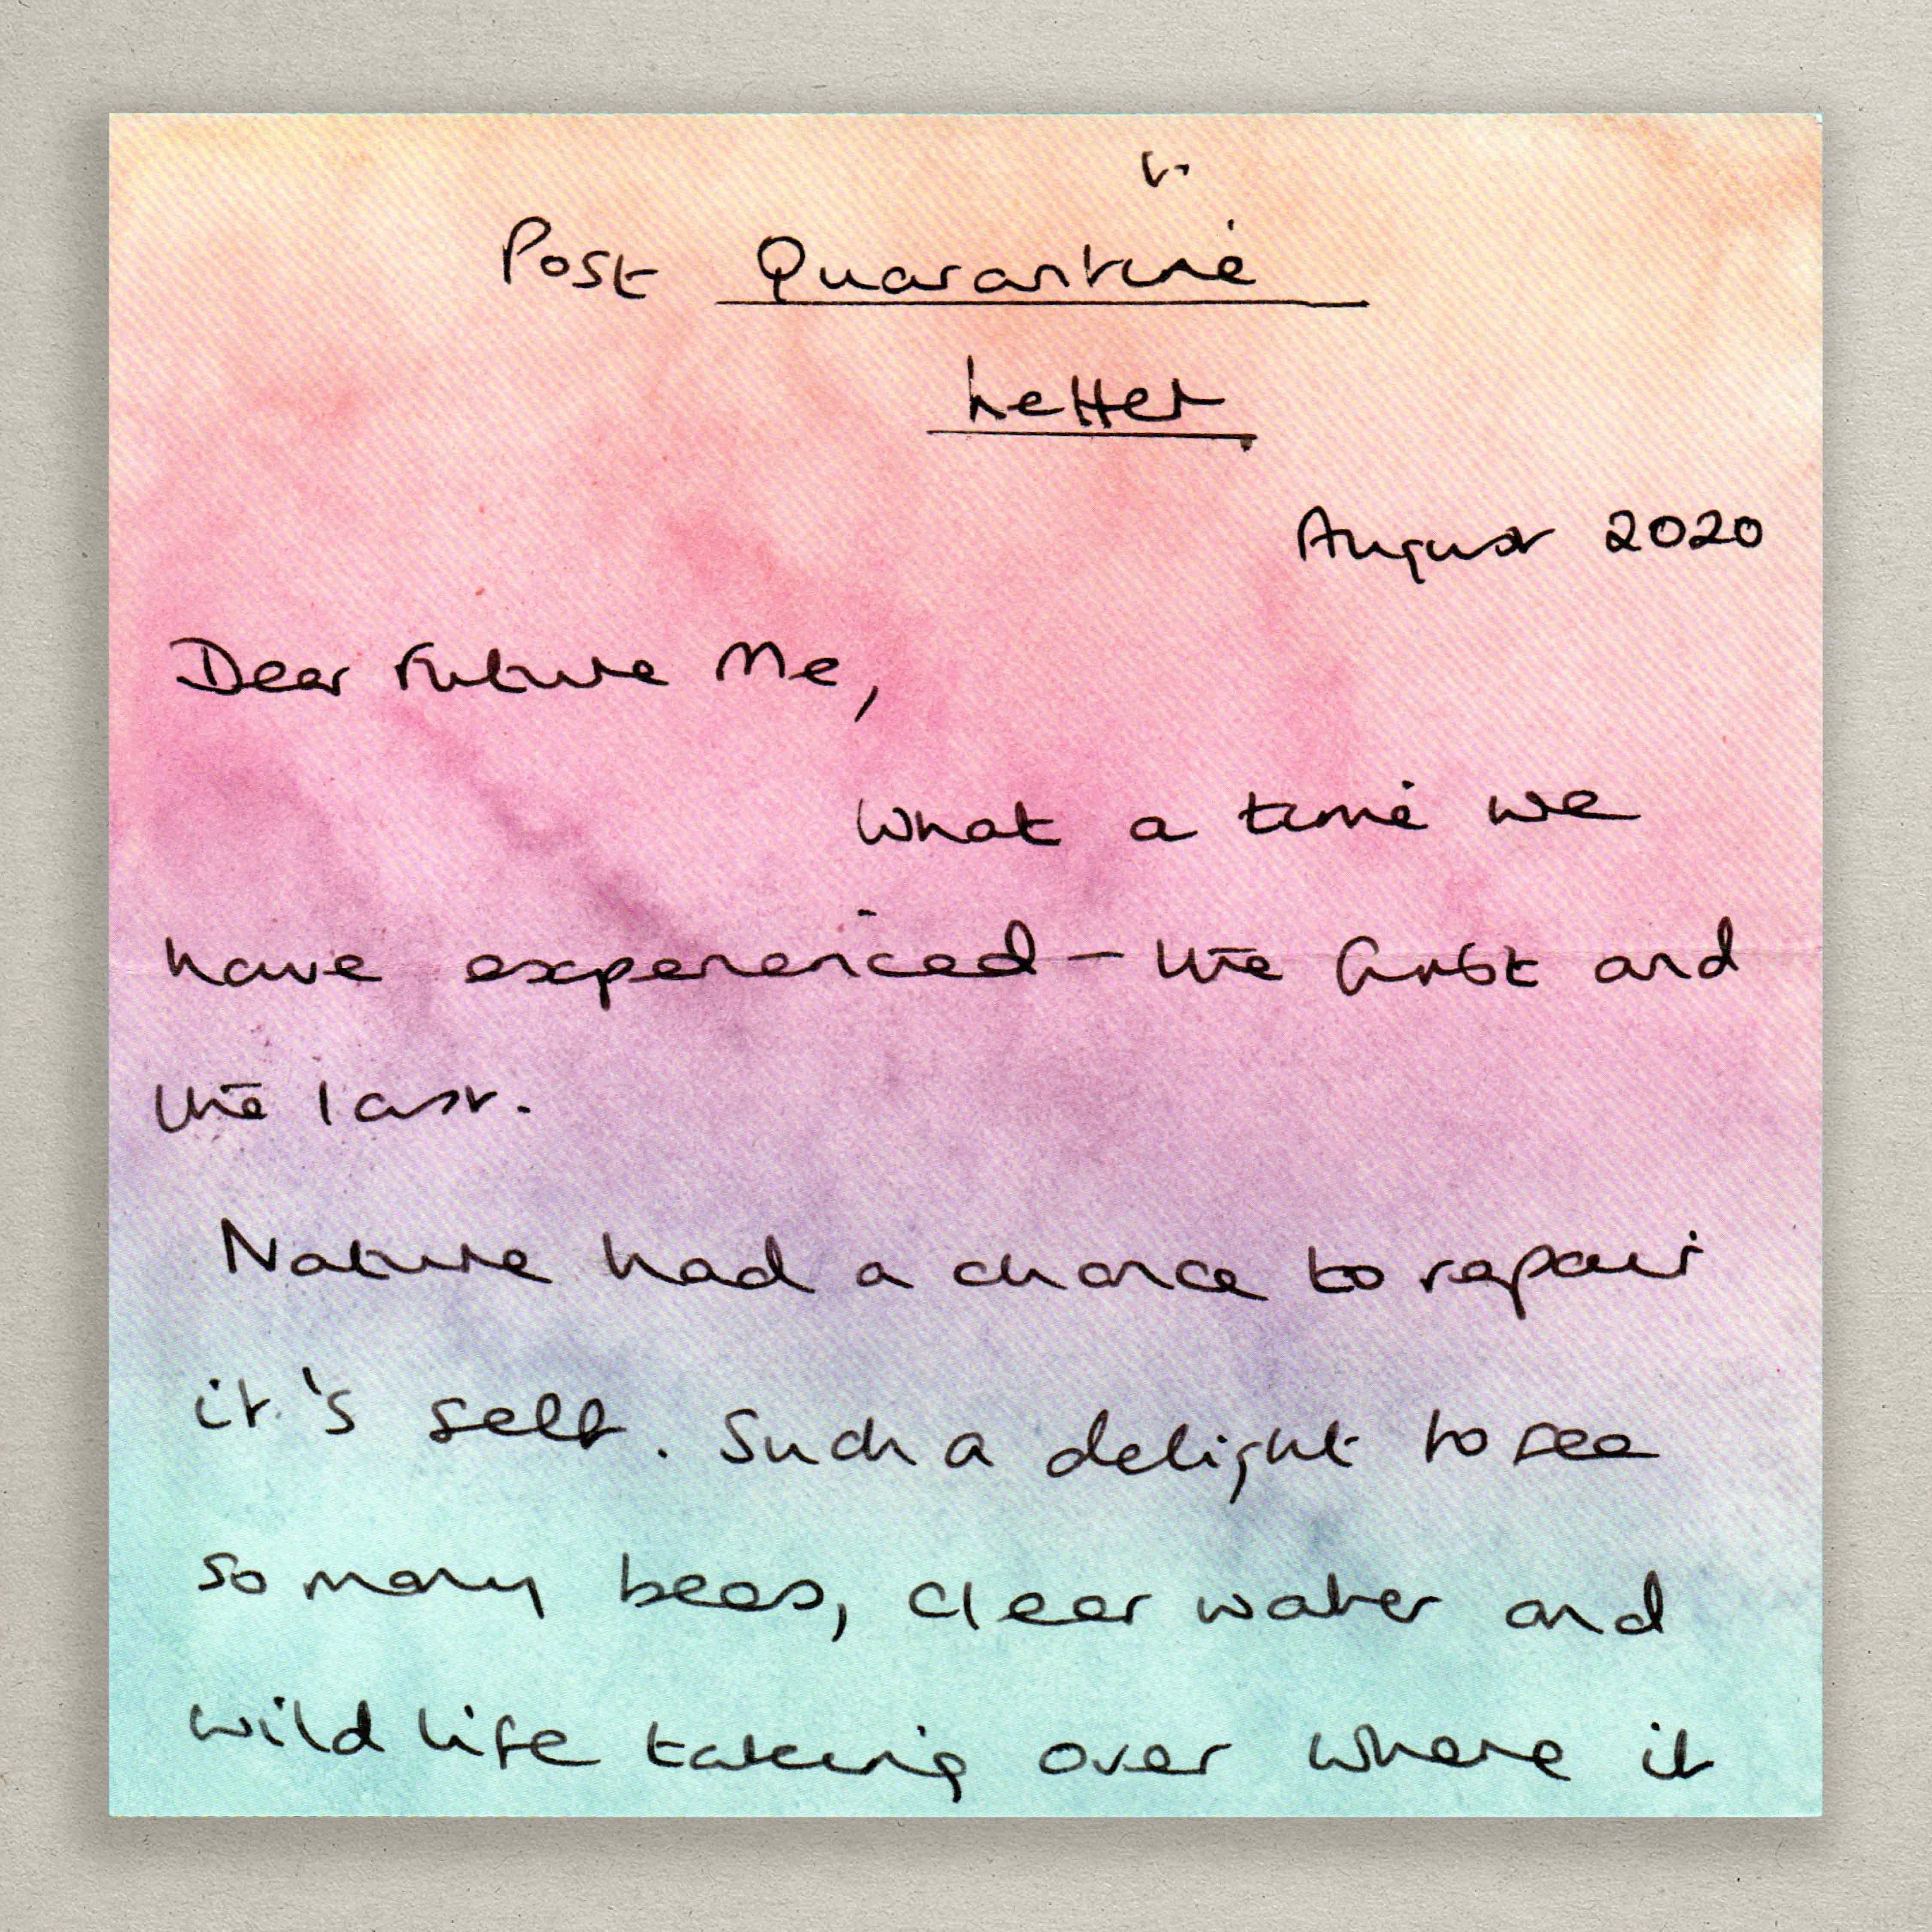 Post Quarantine
Letter
August 2020
Dear Future Me,
What a time we
have experienced - the first and
the last.
Nature had a chance to repair
it's self. Such a delight to see
so many bees, clear water and
wild life taking over where it